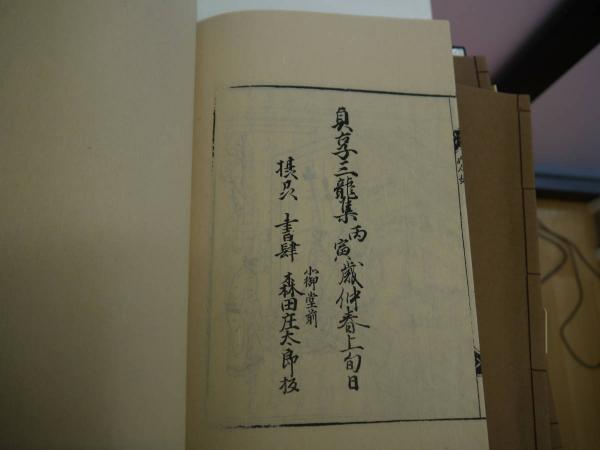 貞享三龍集丙寅歳仲春上旬日
小御堂前
書肆 森田庄太郎板